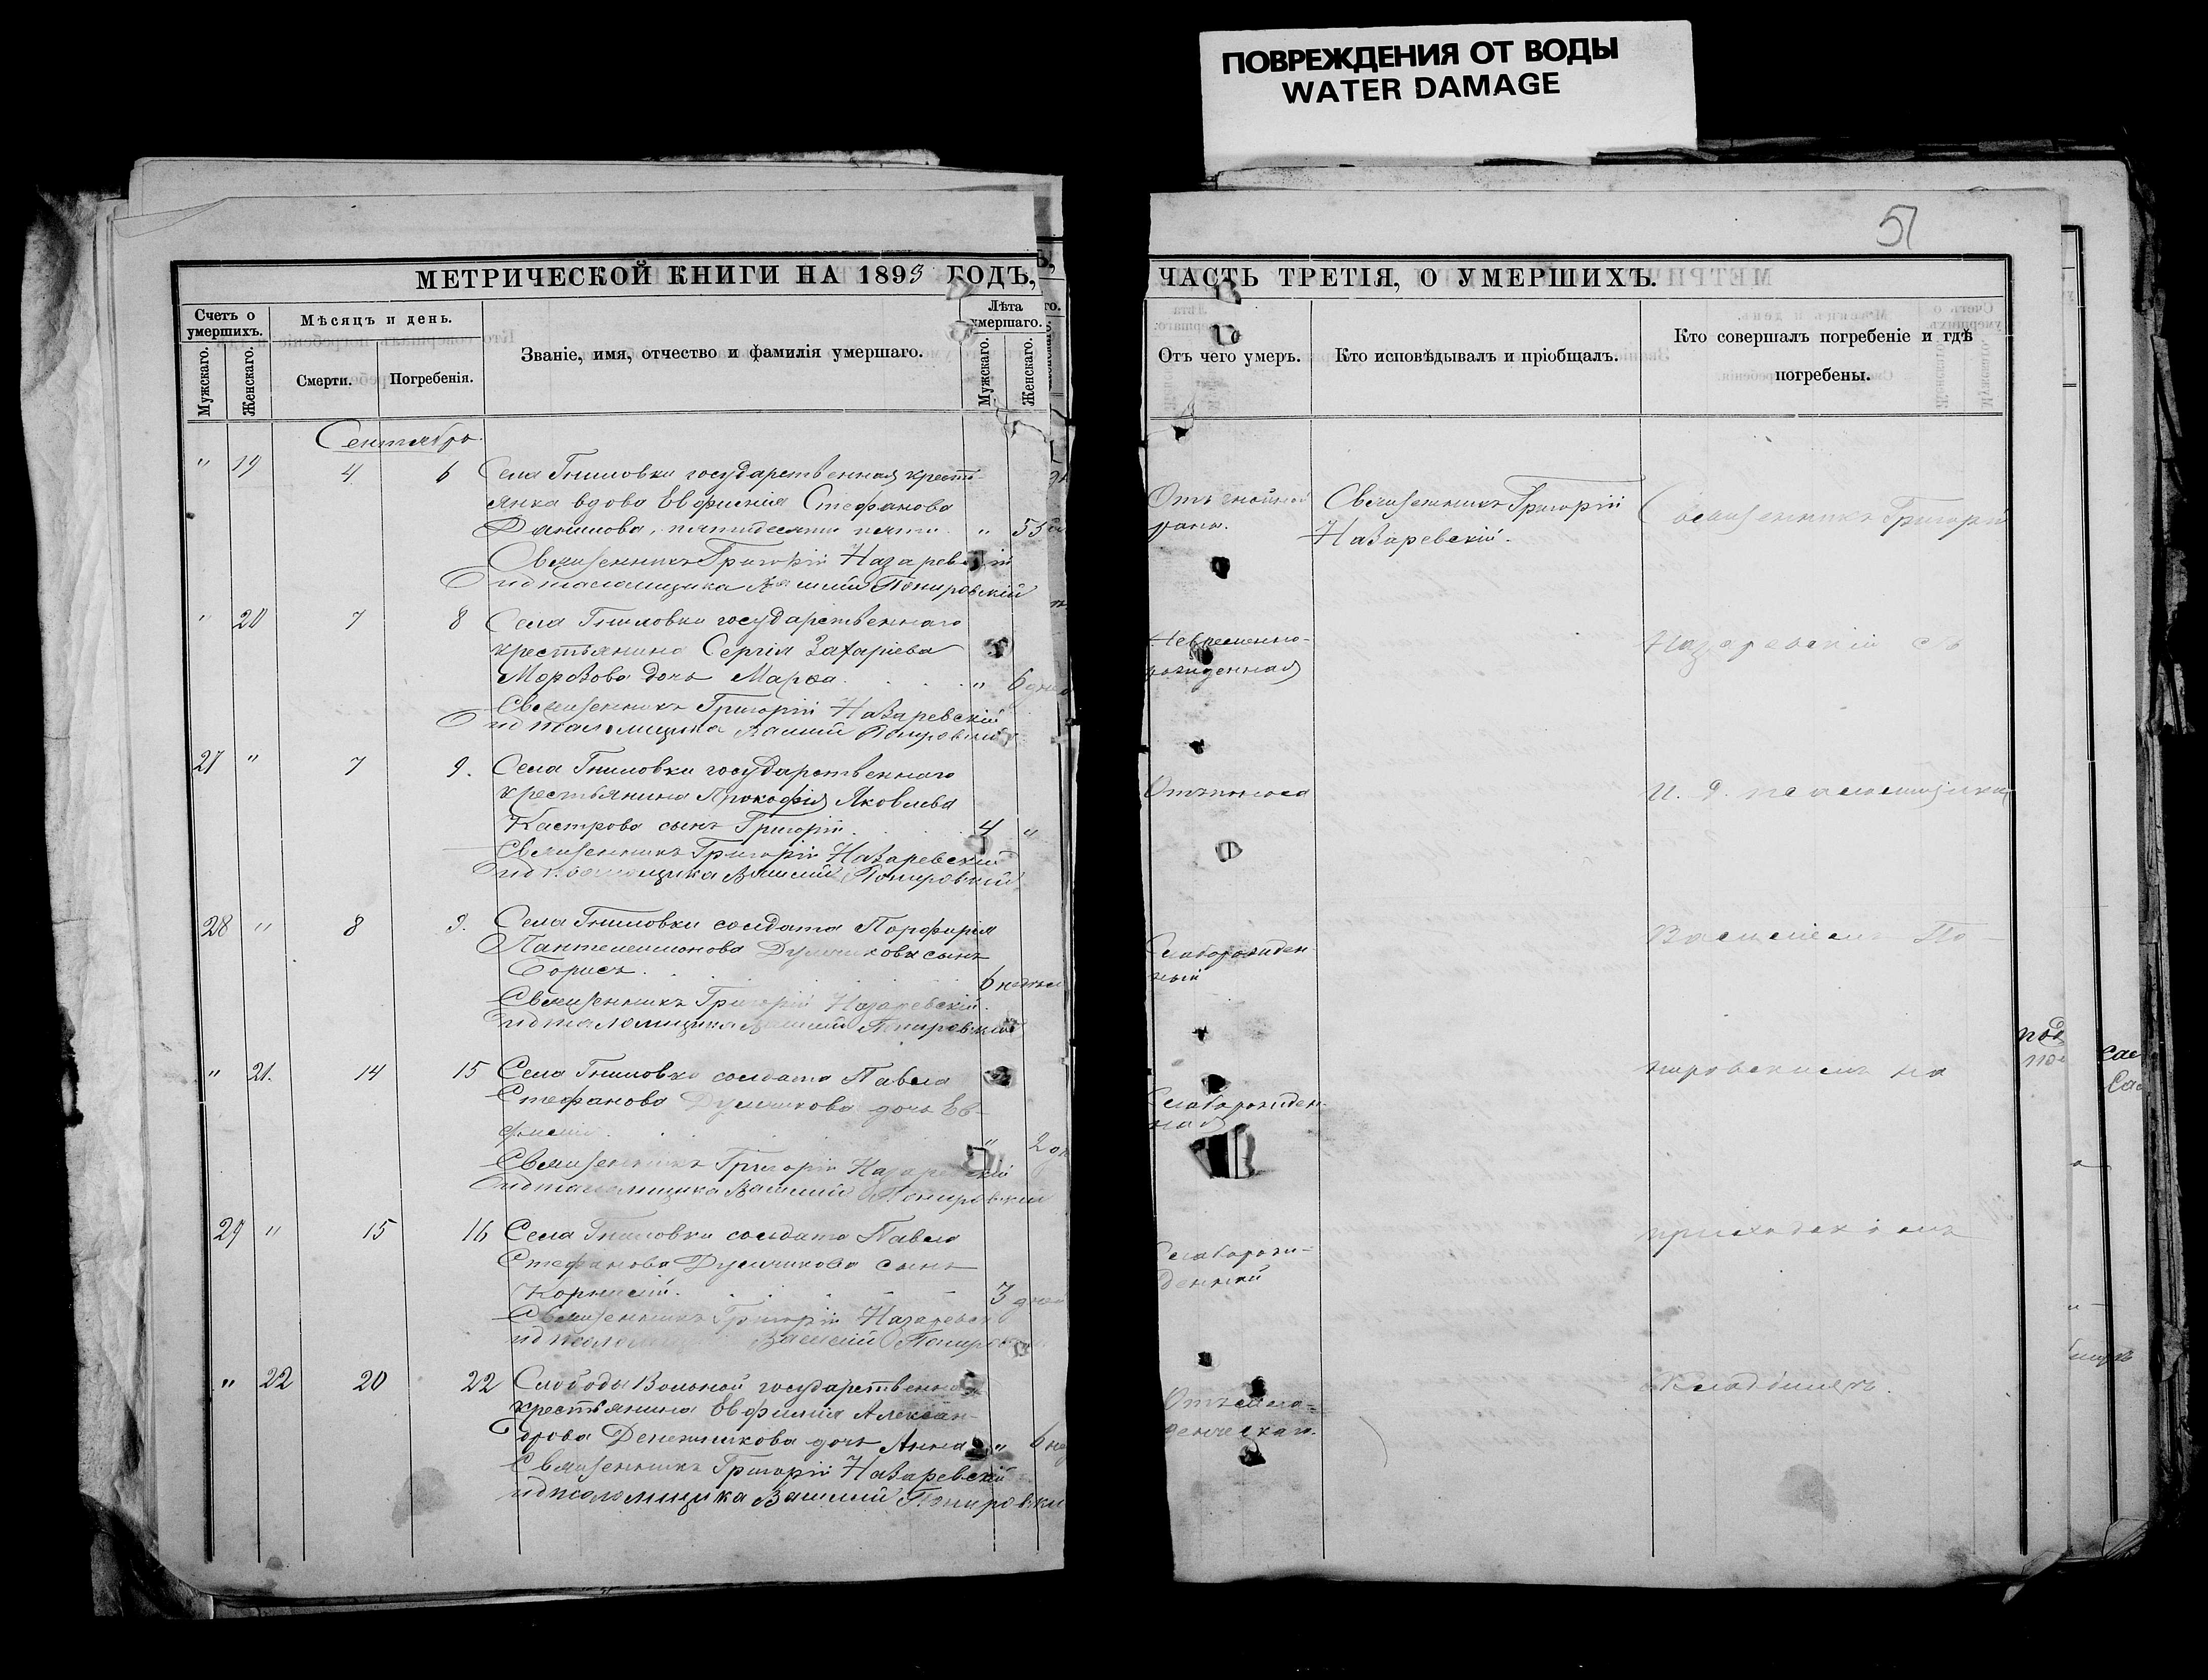 ПОВРЕЖДЕНИЯ ОТ ВОДЫ
WATER DAMAGE
51
МЕТРИЧЕСКОЙ КНИГИ НА 1893 ГОДЪ,
ЧАСТЬ ТРЕТІЯ, О УМЕРШИХЪ.
Счетъ о умершихъ.
Мѣсяцъ и день.
Званіе, имя, отчество и фамилія умершаго.
Лѣта умершаго.
Мужскаго.
Женскаго.
Смерти.
Погребенія.
Мужскаго.
Женскаго.
Отъ чего умеръ.
Кто исповѣдывалъ и пріобщалъ.
Кто совершалъ погребеніе и гдѣ
погребены.
Сентябрь
" 19 4 6 Села Гниловки государственная крестъ-
янка вдова Евфимія Стефанова
Данилова, пятидесяти пяти " 55
Священникъ Григорій Назаревскій
ид псаломщика Василій Попировскій
Отъ гнойной
раны.
Священникъ Григорій
Назаревскій.
Священникъ Григорій
" 20 7 8 Села Гниловки государственнаго
крестьянина Сергія Захаріева
Морозова дочь Марѳа. " 6 дней
Священникъ Григорій Назаревскій
ид псаломщика Василій Попировскій
Невременно-
рожденная
Назаревскій съ
27 " 7 9. Села Гниловки государственнаго
крестьянина Прокофія Яковлева
Кастрова сынъ Григорій. 4 "
Священникъ Григорій Назаревскій
ид псаломщика Василій Попировскій
Отъ поноса
И. д. псаломщика
28 " 8 9. Села Гниловки солдата Порфирія
Пантелеимонова Думчикова сынъ
Борисъ. 6 недѣль
Священникъ Григорій Назаревскій.
ид псаломщика Василій Попировскій
Слаборожден-
ный
Василіемъ По-
" 21. 14 15 Села Гниловки солдата Павла
Стефанова Думчикова дочь Ев-
фимія. " 2
Священникъ Григорій Назаревскій
ид псаломщика Василій Попировскій
Слаборожден-
ная
пировскимъ на
29 " 15 16 Села Гниловки солдата Павла
Стефанова Думчикова сынъ
Корнилій. 3 дней
Священникъ Григорій Назаревск
ид псаломщ Василій Попиров
Слаборож-
денный
приходскомъ
" 22 20 22 Слободы Вольной государственнаго
крестьянина Евфимія Алексан-
дрова Денежникова дочь Анна " 6 нед
Священникъ Григорій Назаревскій
ид псаломщика Василій Попировскій
Отъ мла
денческая.
кладбищѣ.